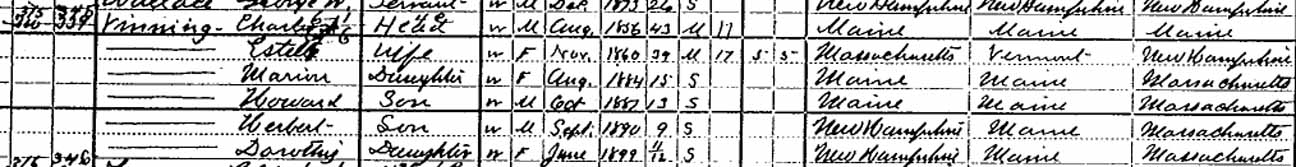 Wallace George W. Servant W M Dec. 1873 26 S New Hampshire New Hampshire New Hampshire
Vinning Charles Head W M Aug. 1856 43 M 17 Maine Maine Maine
Estell Wife W F Nov. 1860 39 M 17 5 5 Massachusetts Vermont New Hampshire
Marion Daughter W F Aug. 1884 15 S Maine Maine Massachusetts
Howard Son W M Oct 1887 13 S Maine Maine Massachusetts
Herbert Son W M Sept. 1890 9 S New Hampshire Maine Massachusetts
Dorothy Daughter W F June 1899 11/12 S New Hampshire Maine Massachusetts
346